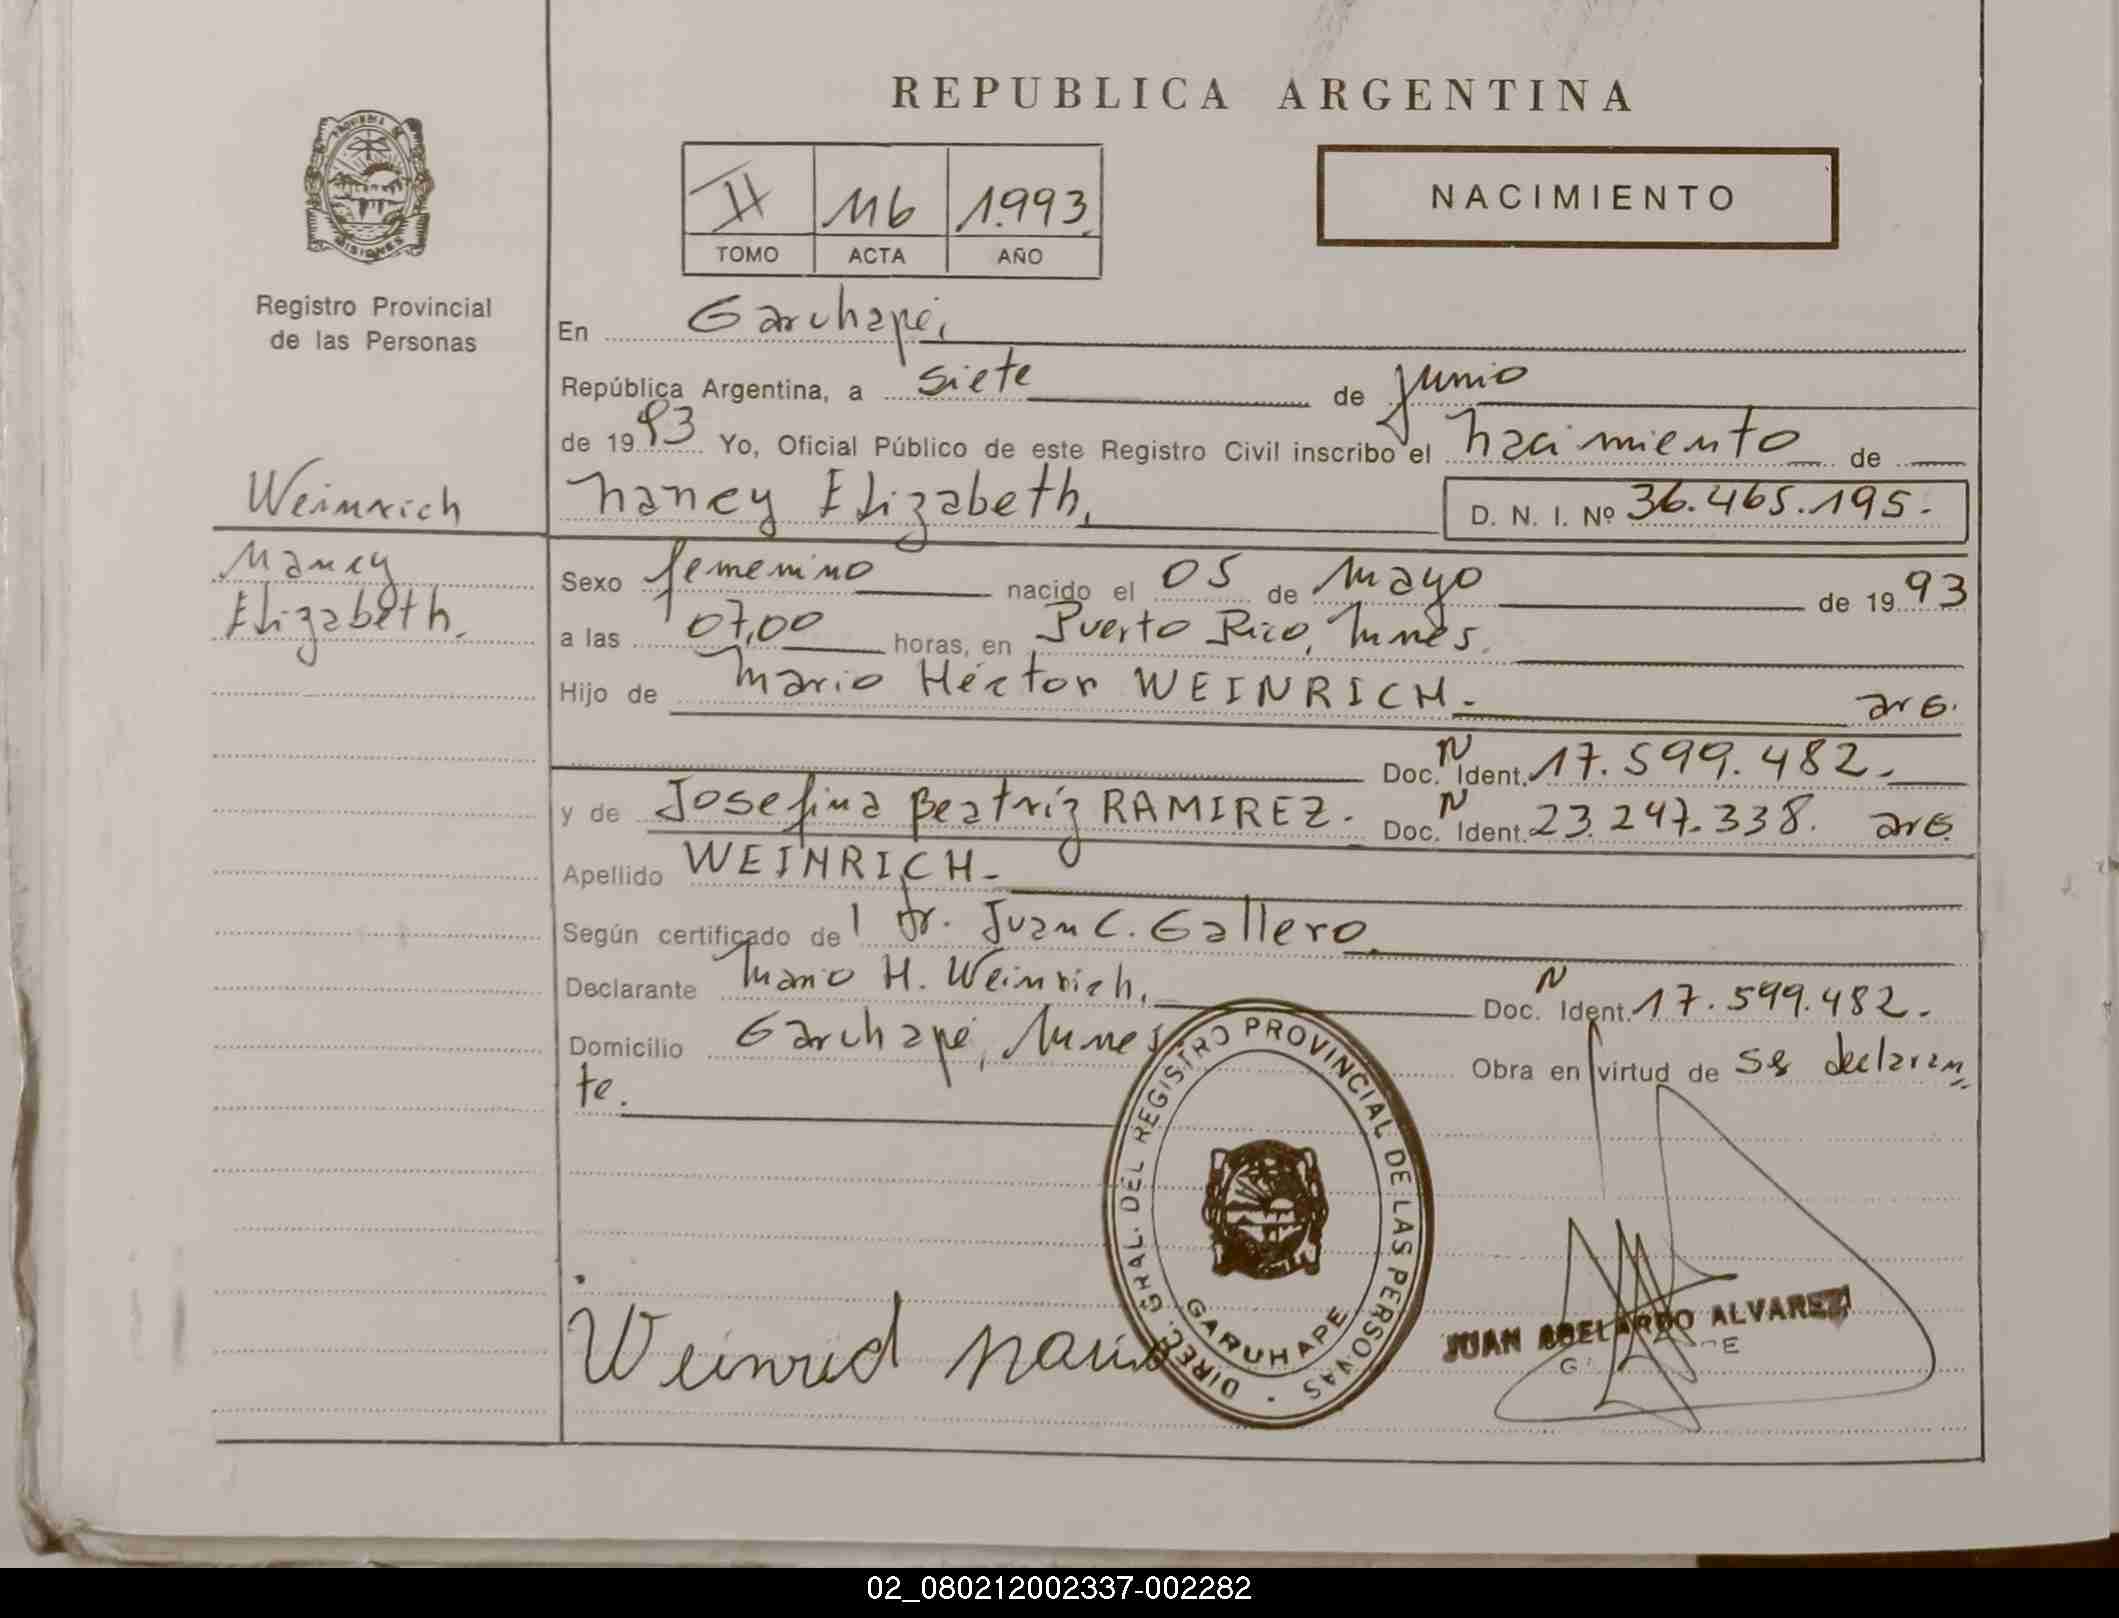 REPUBLICA ARGENTINA
PROVINCIA DE
MISIONES
Registro Provincial
de las Personas
II 116 1.993.
TOMO ACTA AÑO
NACIMIENTO
En Garuhapé,
República Argentina, a siete de Junio
de 1993 Yo, Oficial Público de este Registro Civil inscribo el nacimiento de
Weinrich
Nancy Elizabeth, D. N. I. Nº 36.465.195.
Nancy
Elizabeth.
Sexo femenino nacido el 05 de Mayo de 1993
a las 07,00 horas, en Puerto Rico, Mnes.
Hijo de Mario Héctor WEINRICH. arg.
Doc. N Ident. 17.599.482.
y de Josefina Beatríz RAMIREZ. Doc. N Ident. 23.247.338. arg.
Apellido WEINRICH.
Según certificado de l Dr. Juan C. Gallero.
Declarante Mario H. Weinrich, Doc. N Ident. 17.599.482.
Domicilio Garuhapé, Mnes Obra en virtud de ser declaran
te.
DIREC. GRAL. DEL REGISTRO PROVINCIAL DE LAS PERSONAS
GARUHAPE
Weinrich Mario
JUAN ABELARDO ALVAREZ
02_080212002337-002282